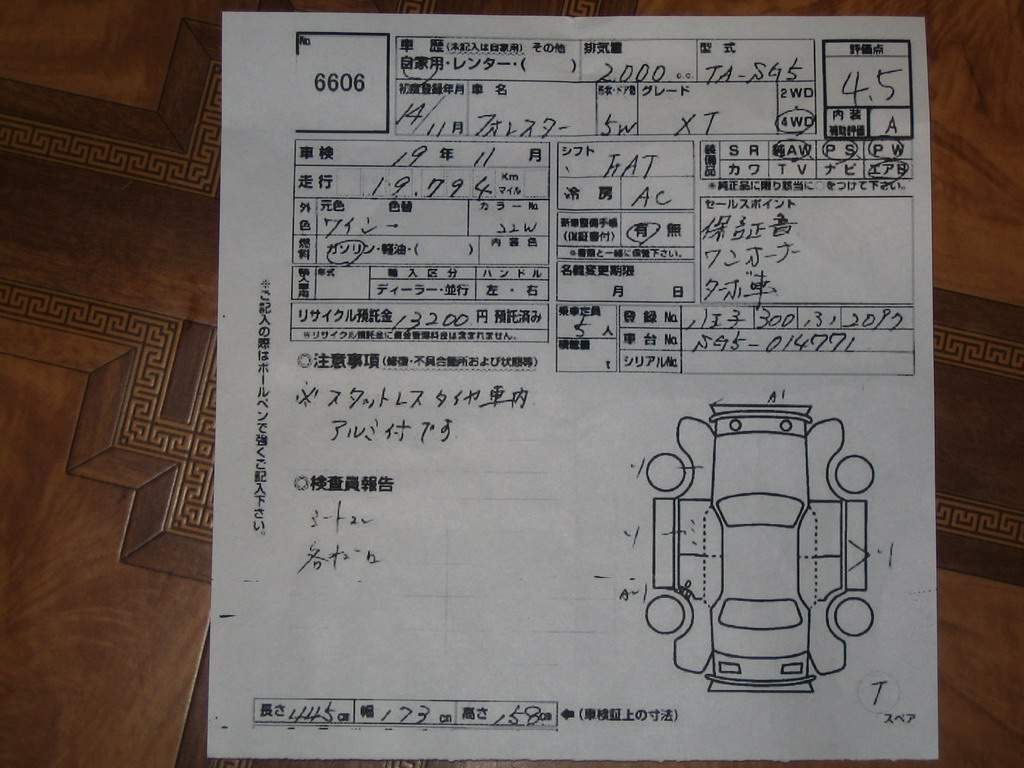 No
6606
車歴(未記入は自家用) その他
自家用・レンター・( )
排気量
2,000 cc
型式
TA-SG5
評価点
4.5
内装
補助評価
A
初度登録年月
14/11月
車名
フォレスター
形状・ドア数
5W
グレード
XT
2WD
4WD
車検 19年 11月
走行 19,794 Km マイル
外色 元色 色替
ワイン
カラーNo
22W
燃料 ガソリン・軽油・( )
内装色
輸入車用 年式 輸入区分 ハンドル
ディーラー・並行 左・右
リサイクル預託金 13200円 預託済み
※リサイクル預託金に資金管理料金は含まれません。
シフト
FAT
冷房
AC
新車整備手帳
(保証書付)
有 無
※書類と一緒に保管下さい。
名義変更期限
月 日
装備品 SR 純AW PS PW
カワ TV ナビ エアB
※純正品に限り該当に○をつけて下さい。
セールスポイント
保証書
ワンオーナー
ターボ車
乗車定員
5人
積載量
t
登録No 八王子 300 す 2097
車台No SG5-014771
シリアルNo
◎注意事項(修復・不具合箇所および状態等)
※スタットレスタイヤ車内
アルミ付です
◎検査員報告
各キズ
※ご記入の際はボールペンで強くご記入下さい。
A'
A-
T
スペア
長さ 445cm 幅 173cm 高さ 158cm ←(車検証上の寸法)